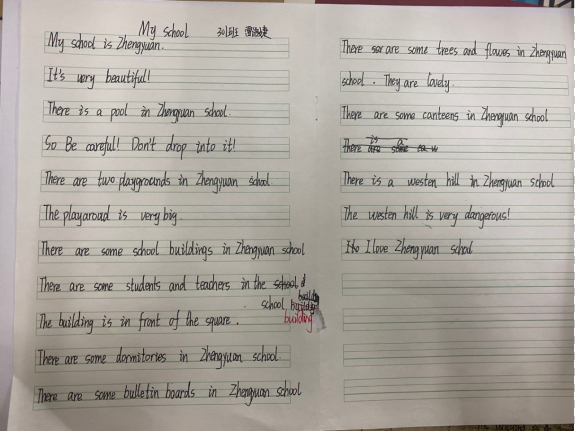 My school 301班
My school is Zhengyuan.
It's very beautiful!
There is a pool in Zhengyuan school.
So Be careful! Don't drop into it!
There are two playgrounds in Zhengyuan school.
The playaroad is very big.
There are some school buildings in Zhengyuan school
There are some students and teachers in the school
school building
building
The building is in front of the square.
There are some dormitories in Zhengyuan school.
There are some bulletin boards in Zhengyuan school
There are some trees and flowes in Zhengyuan
school. They are lovely.
There are some canteens in Zhengyuan school
is a
There are some
There is a westen hill in Zhengyuan school
The westen hill is very dangerous!
I love Zhengyuan school